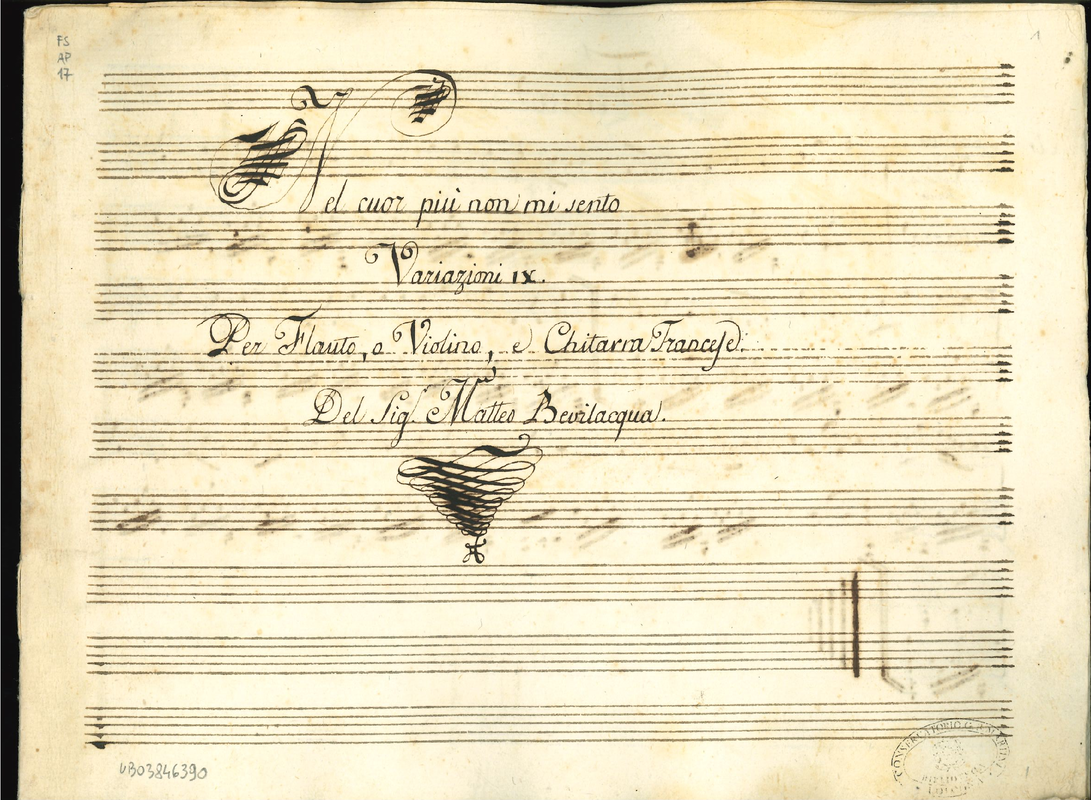 FS
AP
17
1
Nel cuor più non mi sento
Variazioni IX.
Per Flauto, o Violino, e Chitarra Francese
Del Sig.r Matteo Bevilacqua.
UB03846390
CONSERVATORIO G. B. MARTINI